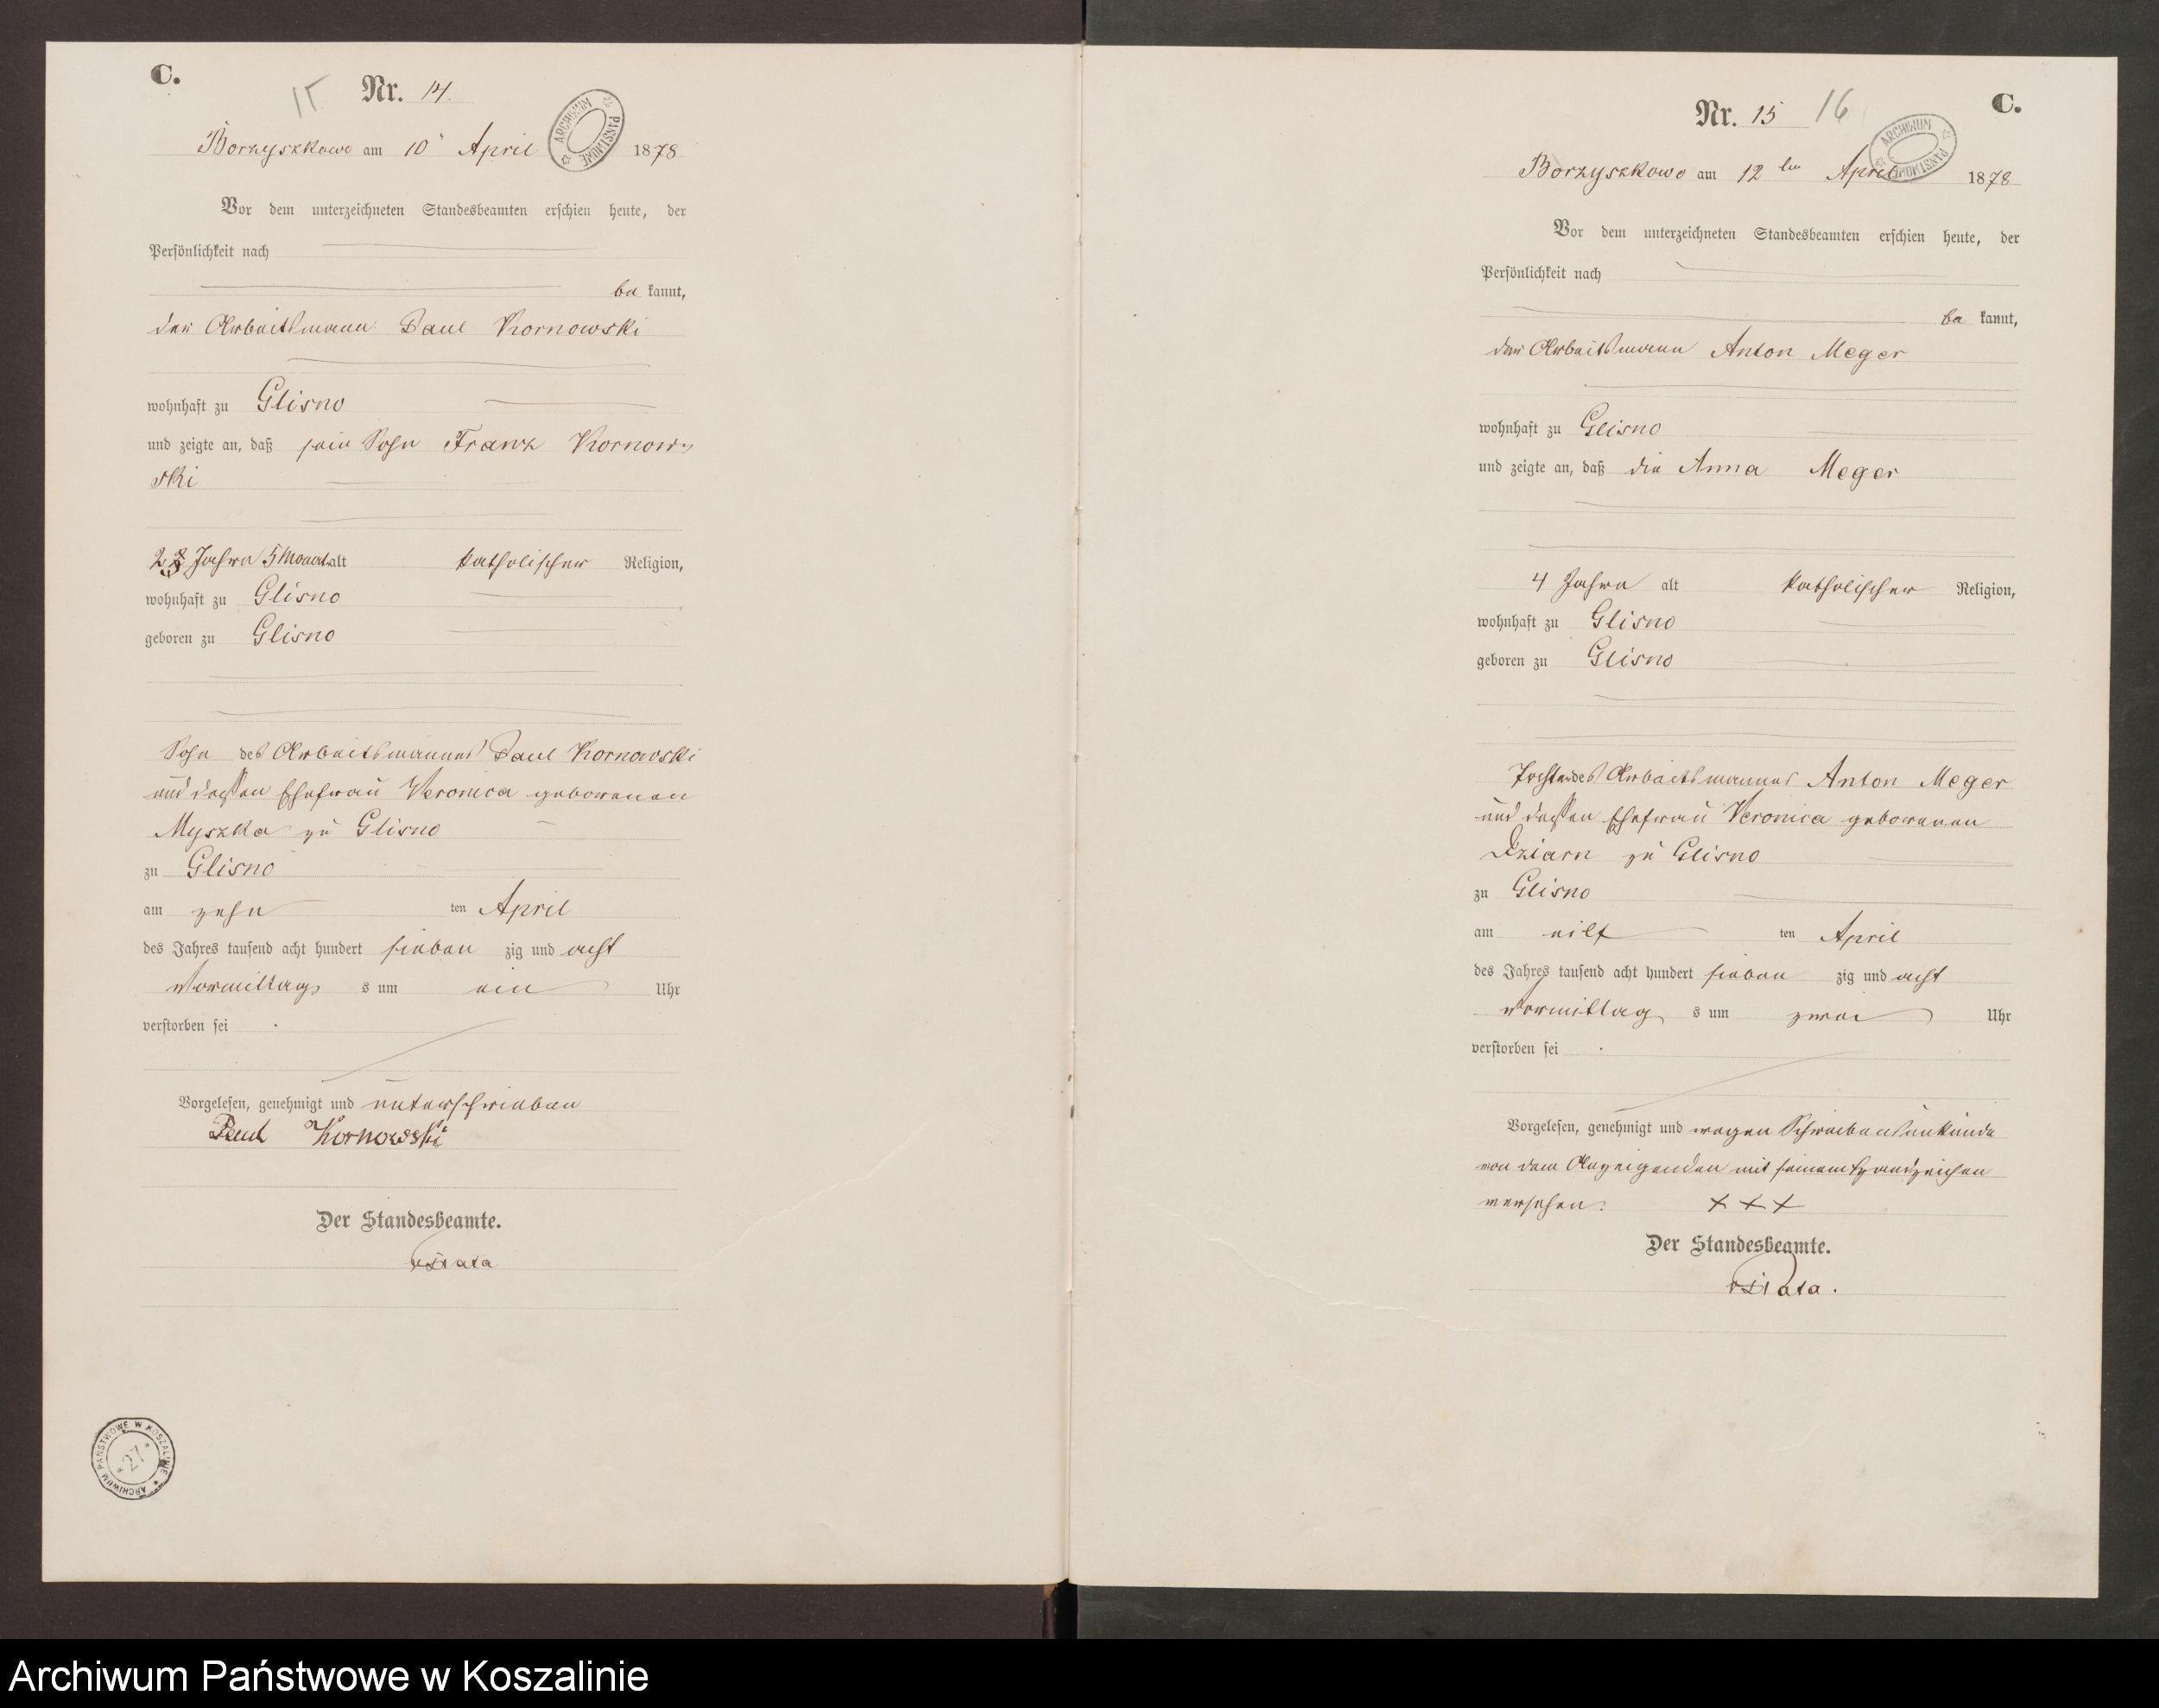 C.
15
Nr. 14.
ARCHIWUM PAŃSTWOWE
Borzyszkowo am 10 April 1878
Vor dem unterzeichneten Standesbeamten erschien heute, der
Persönlichkeit nach
be kannt,
der Arbeitsmann Paul Kornowski
wohnhaft zu Glisno
und zeigte an, daß sein Sohn Franz Kornow-
ski
Jahre 5 Monat alt katholischer Religion,
wohnhaft zu Glisno
geboren zu Glisno
Sohn des Arbeitsmannes Paul Kornowski
und dessen Ehefrau Veronica geborenen
Myszka zu Glisno
zu Glisno
am zehn ten April
des Jahres tausend acht hundert sieben zig und acht
Vormittag s um ein Uhr
verstorben sei .
Vorgelesen, genehmigt und unterschrieben
Paul Kornowski
Der Standesbeamte.
ARCHIWUM PAŃSTWOWE W KOSZALINIE
27
C.
Nr. 15 16
ARCHIWUM PAŃSTWOWE
Borzyszkowo am 12 ten April 1878
Vor dem unterzeichneten Standesbeamten erschien heute, der
Persönlichkeit nach
be kannt,
der Arbeitsmann Anton Meger
wohnhaft zu Glisno
und zeigte an, daß die Anna Meger
4 Jahre alt katholischer Religion,
wohnhaft zu Glisno
geboren zu Glisno
Tochter des Arbeitsmannes Anton Meger
und dessen Ehefrau Veronica geborenen
Dziarn zu Glisno
zu Glisno
am eilf ten April
des Jahres tausend acht hundert sieben zig und acht
Vormittag s um zwei Uhr
verstorben sei .
Vorgelesen, genehmigt und wegen Schreibensunkunde
von dem Anzeigenden mit seinem Handzeichen
versehen. + + +
Der Standesbeamte.
Archiwum Państwowe w Koszalinie